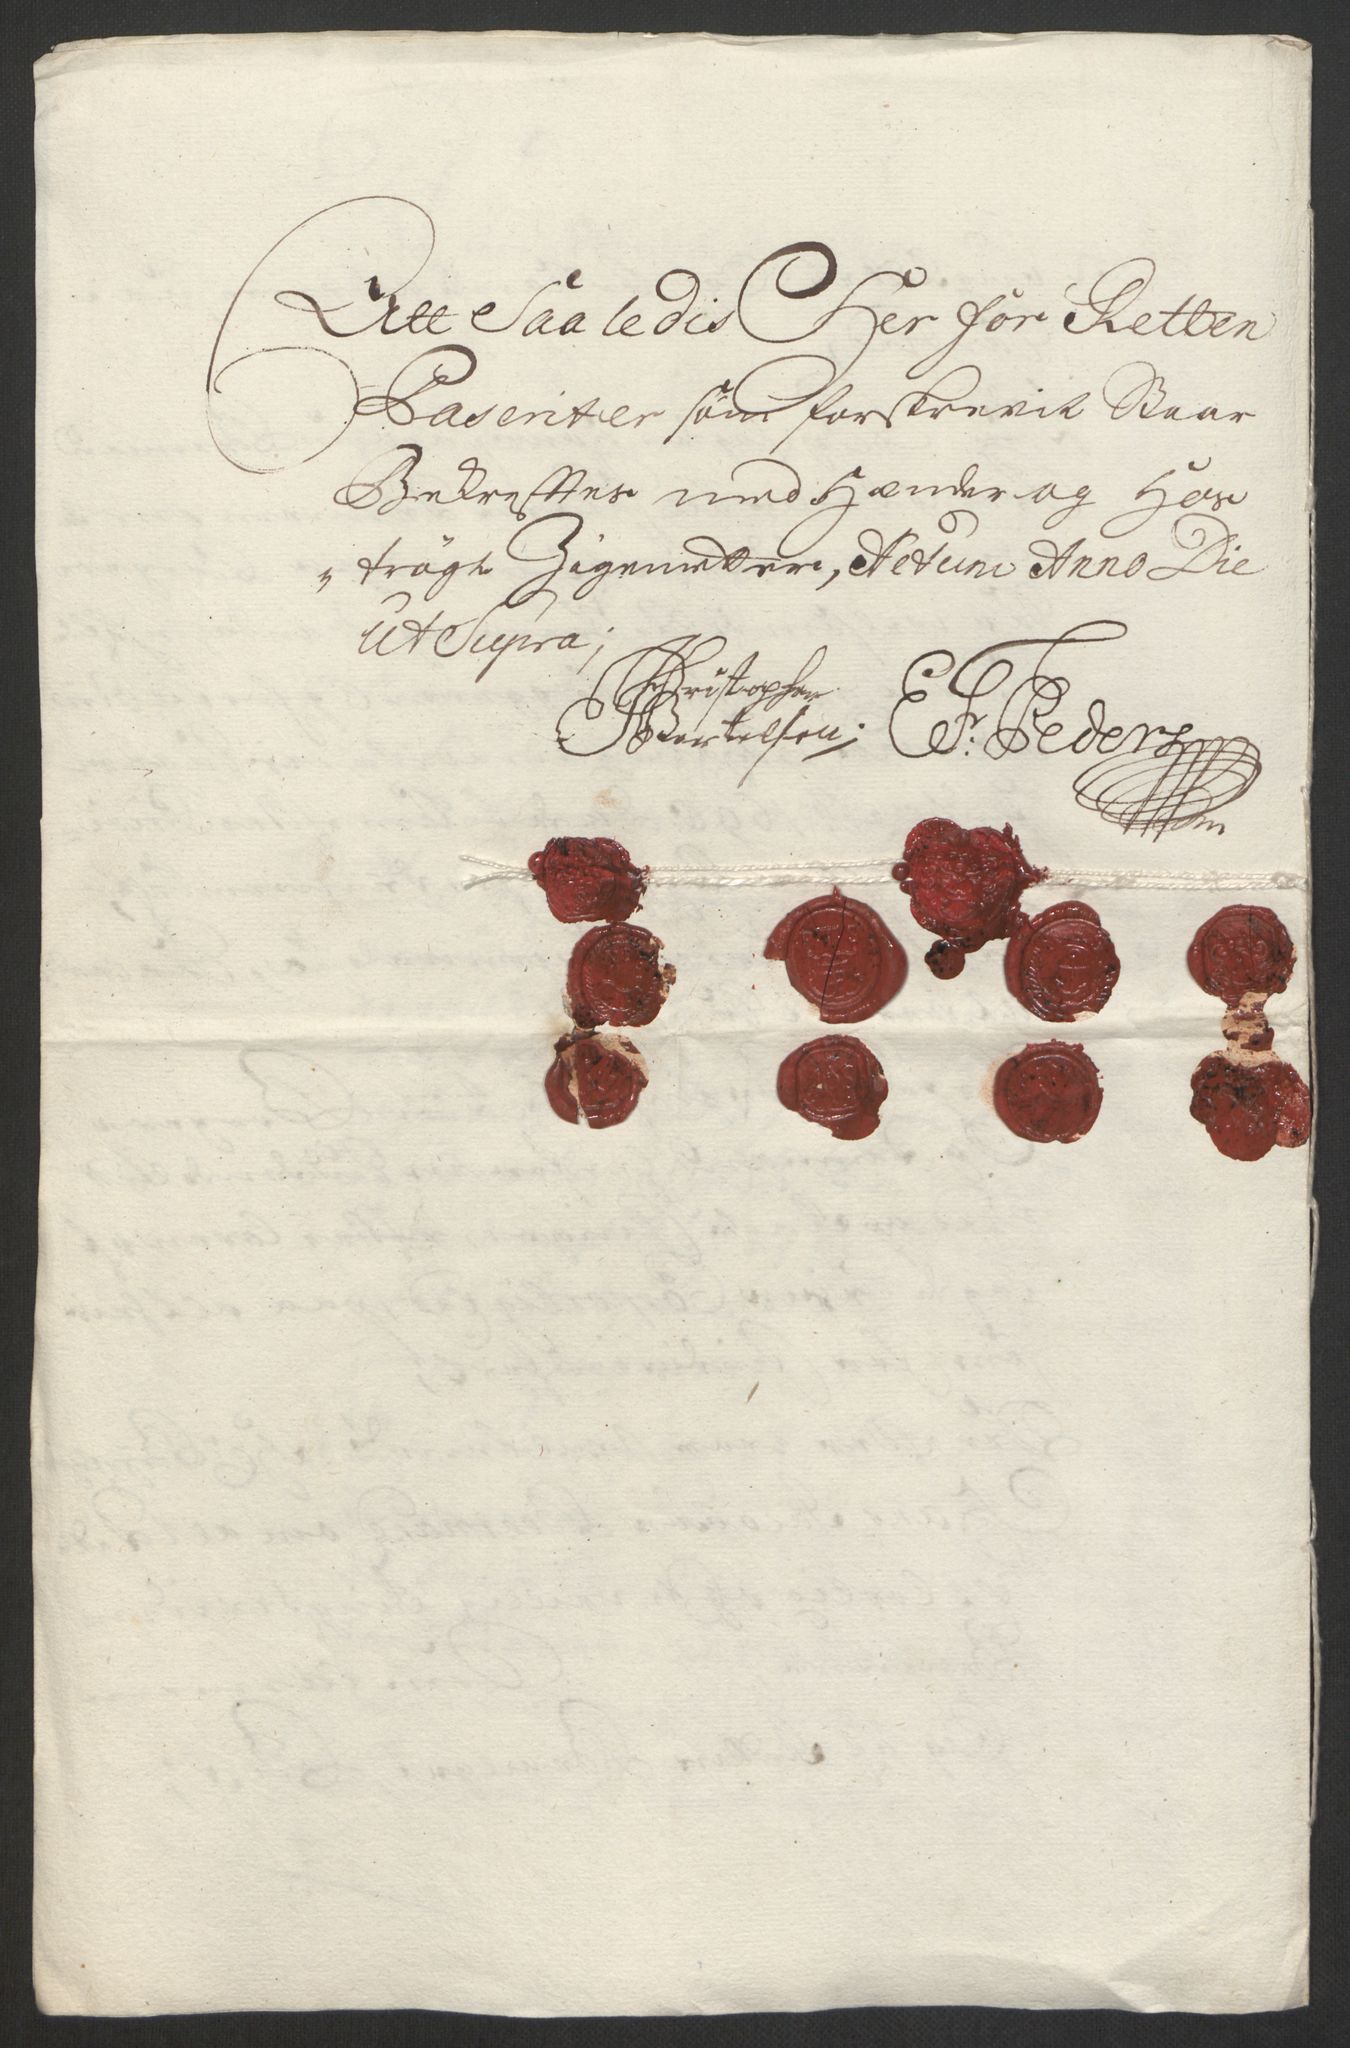 Att Saaledis Her for Retten
Paserit er som forskrevit Staar
Bekreftes med Hænder og Hos
„ trögt Zigenetter, Actum Anno Die
Ut Supra;
Christopher
Bertelsen; E F: Peders